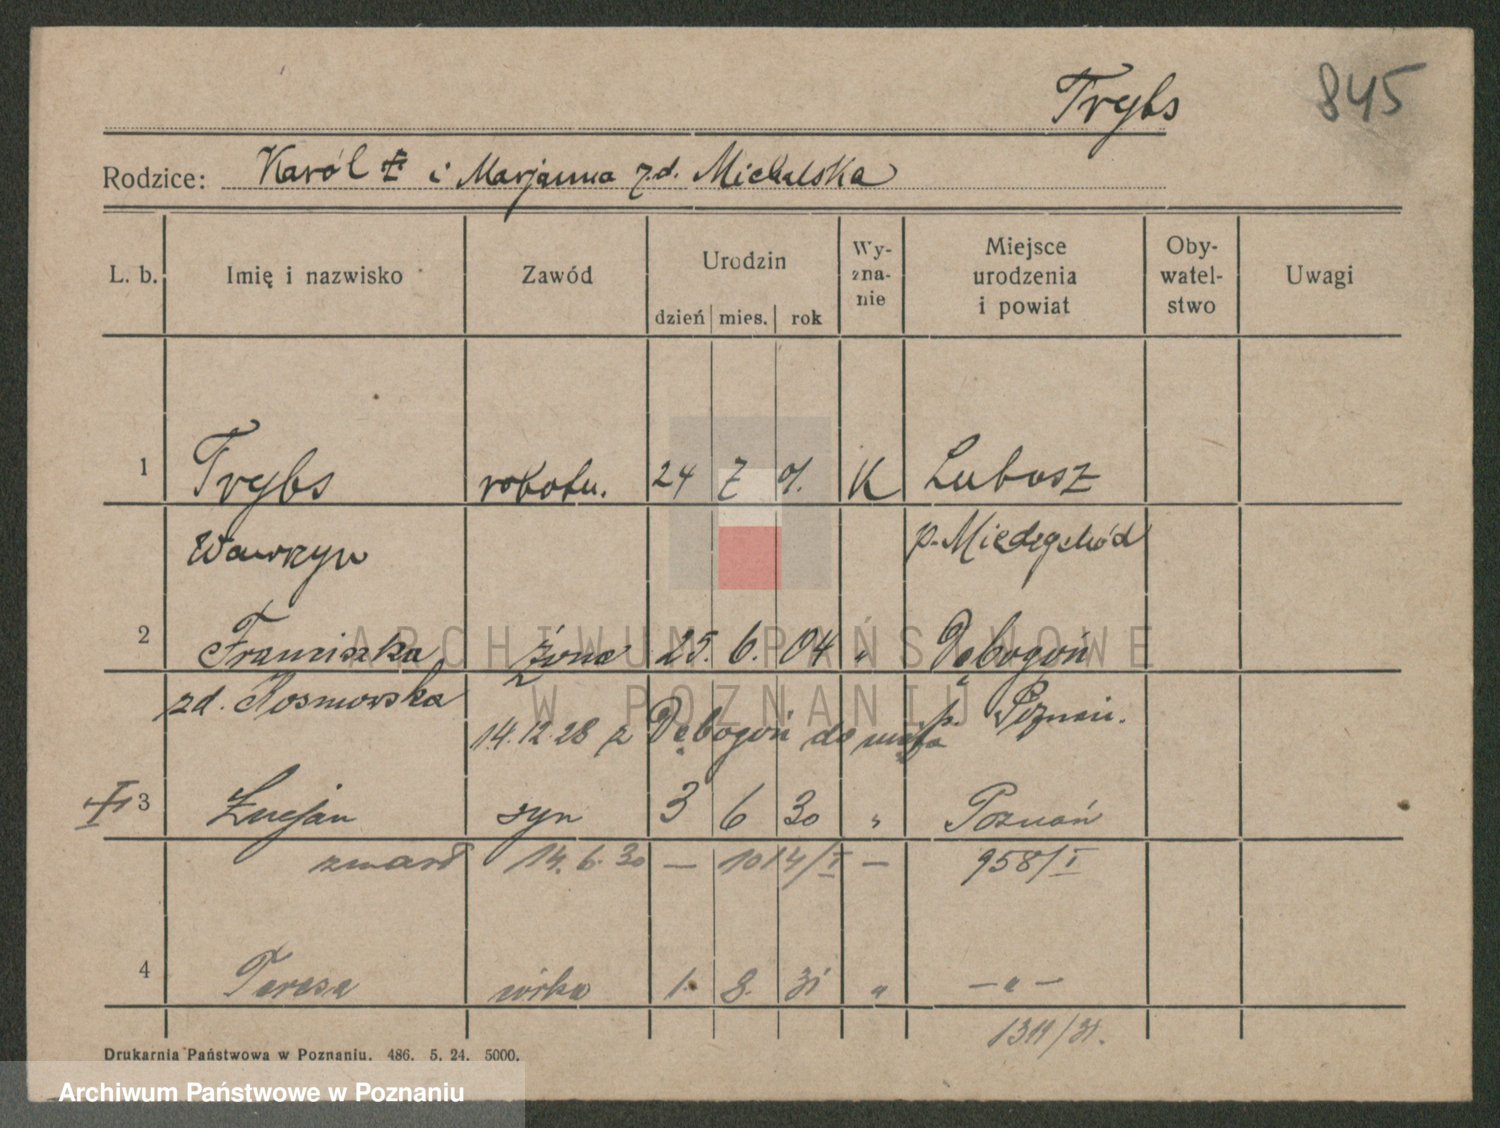 Trybs 845
Rodzice: Karól i Marjanna z.d. Michalska
L. b. Imię i nazwisko Zawód Urodzin dzień mies. rok Wy-zna-nie Miejsce urodzenia i powiat Oby-watel-stwo Uwagi
1 Trybs robotn. 24 7 01. K Lubosz
Wawrzyn p. Międzychód
2 Franciszka żona 25. 6. 04 " Dębogóń
zd. Rosmowska p. Poznań.
14.12.28 z Dębogóń do męża
3 Lucjan syn 3 6 30 " Poznań
zmarł 14. 6. 30 — 1014/I — 958/I
4 Teresa córka 1. 8. 31 " — " —
1311/31.
Drukarnia Państwowa w Poznaniu. 486. 5. 24. 5000.
ARCHIWUM PAŃSTWOWE
W POZNANIU
Archiwum Państwowe w Poznaniu